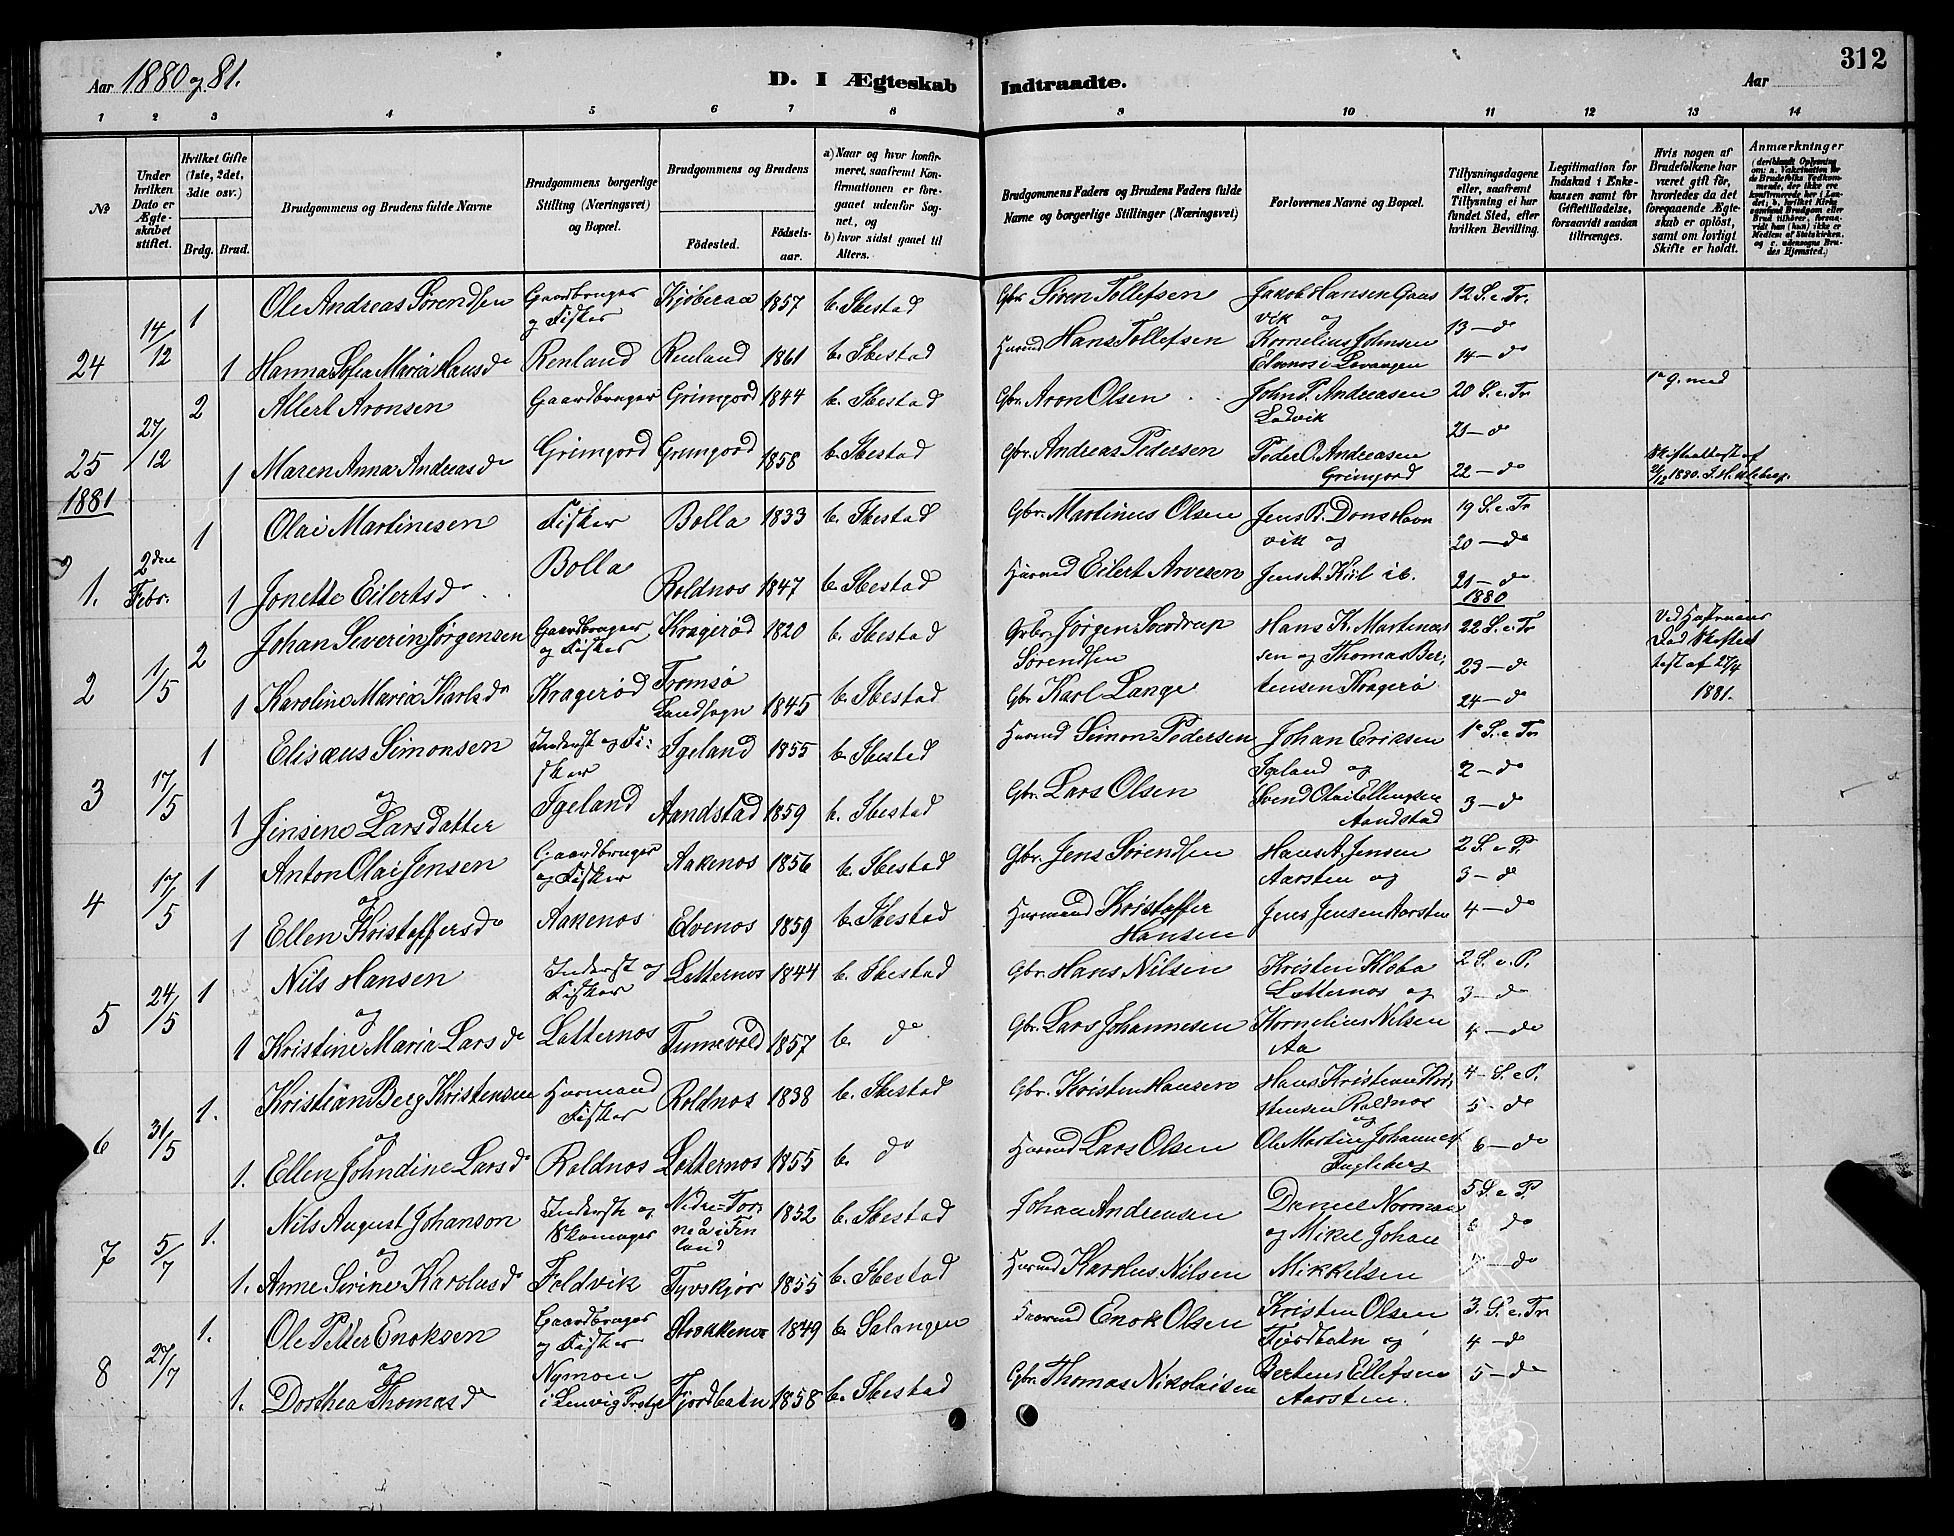 Aar 1880 og 81.
D. I Ægteskab Indtraadte.
Aar
312
1 2 3 4 5 6 7 8 9 10 11 12 13 14
No
Under hvilken Dato er Ægteskabet stiftet.
Hvilket Gifte (1ste, 2det, 3die osv.)
Brdg. Brud.
Brudgommens og Brudens fulde Navne
Brudgommens borgerlige Stilling (Næringsvei) og Bopæl.
Brudgommens og Brudens
Fødested.
Fødselsaar.
a) Naar og hvor konfirmeret, saafremt Konfirmationen er foregaaet udenfor Sognet, og
b) hvor sidst gaaet til Alters.
Brudgommens Faders og Brudens Faders fulde Navne og borgerlige Stillinger (Næringsvei)
Forlovernes Navne og Bopæl.
Tillysningsdagene eller, saafremt Tillysning ei har fundet Sted, efter hvilken Bevilling.
Legitimation for Indskud i Enkekassen samt for Giftetilladelse, forsaavidt saadan tiltrænges.
Hvis nogen af Brudefolkene har været gift før, hvorledes da det foregaaende Ægteskab er opløst, samt om lovligt Skifte er holdt.
Anmærkninger
24 14/12 1 Ole Andreas Sørendsen Gaardbruger og Fisker Kjøberaa 1857 b. Ibestad Gbr. Søren Tollefsen Jakob Hansen Gaasvik og 12 S. e. Tr.
13 - do
1 Hanna Sofia Maria Hansdr Renland Renland 1861 b. Ibestad Husmd Hans Tollefsen Kornelius Johnsen Elvenes i Lavangen 14 - do
25 27/12 2 Albert Aronsen Gaardbruger Grimgord 1844 b. Ibestad Gbr. Aron Olsen John P. Andreasen Lødvik 20 S. e. Tr 1o g. med
21 - do
1 Maren Anna Andreasdr Grimgord Grimgord 1858 b. Ibestad Gbr. Andreas Pedersen Peder O. Andreasen Grimgord 22 - do Skifteattest af
1880.
1881
1. 2den Febr. 1 Olai Martinesen Fisker Bolla 1833 b. Ibestad Gbr. Martinus Olsen Jens B. Dons Havnvik og 19 S. e. Tr
20 - do
1 Jonette Eilertsdr Bolla Roldnes 1847 b. Ibestad Husmd Eilert Arvesen Jens A. Kiil ib. 21 - do
1880
2 1/5 2 Johan Severin Jørgensen Gaardbruger og Fisker Kragerød 1820 b. Ibestad Gbr. Jørgen Sørendsen Hans K. Martenussen og Thomas Bertensen Kragerø 22 S. e. Tr
23 - do
Død Skifteattest af 27/4 1881.
1 Karoline Maria Karlsdr Kragerød Tromsø Landsogn 1845 b. Ibestad Gbr. Karl Lange 24 - do
3 17/5 1 Elisæus Simonsen Inderst og Fisker Igeland 1855 b. Ibestad Husmd Simon Pedersen Johan Eriksen Igeland og 1e S. e. Tr
og
2 - do
1 Jensine Larsdatter Igeland Aandstad 1859 b. Ibestad Gbr. Lars Olsen Svend Olai Ellingsen Aandstad 3 - do
4 17/5 1 Anton Olai Jensen Gaardbruger og Fisker Aakenes 1856 b. Ibestad Gbr. Jens Sørendsen Hans A. Jensen Aarsten og 2 S. e. P.
og
3 - do
1 Ellen Kristoffersdr Aakenes Elvenes 1859 b. Ibestad Husmand Kristoffer Hansen Jens Jensen Aarsten 4 - do
5 24/5 1 Nils Hansen Inderst og Fisker Lotternos 1844 b. Ibestad Gbr. Hans Nilsen Kristen Kloba Lotternos og 2 S. e. P.
og
3 - do
1 Kristine Maria Larsdr Lotternos Tunnevold 1857 b. do Gbr. Lars Johannesen Kornelius Nilsen Aa 4 - do
6 31/5 1. Kristian Berg Kristensen Husmand Fisker Roldnos 1838 b. Ibestad Gbr. Kristen Hansen Hans Kristian Kristensen Roldnos og 4 - S. e P.
og
5 - do
1. Ellen Johndine Larsdr Roldnos Lotternos 1855 b. do Husmd Lars Olsen Ole Martin Johannes Fugleberg 6 - do
7 5/7 1. Nils August Johanson Inderst og Skomager Nedre-Torneå i Finland 1852 b. Ibestad Johan Andreasen Daniel Norman 5 S. e P.
og
og Mikel Johan Mikkelsen 6 do
1. Anne Sirine Karolusdr Foldvik Tyvskjær 1855 b. Ibestad Husmd Karolus Nilsen 7 - do
8 27/7 1. Ole Petter Enoksen Gaardbruger og Fisker 1849 b. Salangen Husmd Enok Olsen Kristen Olsen Fjordbotn og 3. S. e. Tr.
og
4 - do
1. Dorthea Thomasdr Nymoen i Lenvig Prstgj Fjordbotn 1858 b. Ibestad Gbr. Thomas Nikolaisen Bertens Ellefsen Aarsten. 5 - do